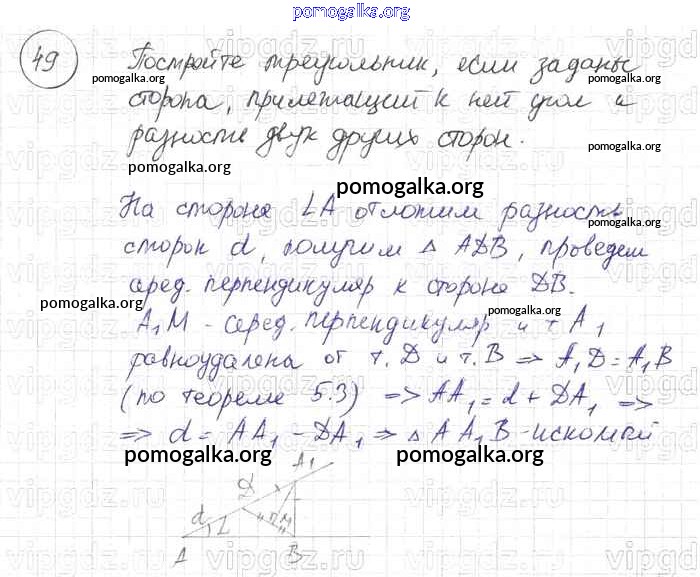 pomogalka.org
49 Постройте треугольник, если заданы
pomogalka.org
pomogalka.org
сторона, прилежащий к ней угол и
разность двух других сторон.
pomogalka.org
pomogalka.org
pomogalka.org
На стороне ∠A отложим разность
pomogalka.org
сторон d, получим △ ADB, проведем
серед. перпендикуляр к стороне DB.
pomogalka.org
pomogalka.org
A₁M - серед. перпендикуляр и т. A₁
равноудалена от т. D и т. B => A₁D = A₁B
(по теореме 5.3) => AA₁ = d + DA₁ =>
=> d = AA₁ - DA₁ => △ AA₁B - искомый
pomogalka.org
pomogalka.org
A₁
D
d
∠
M
A
B
vipgdz.ru